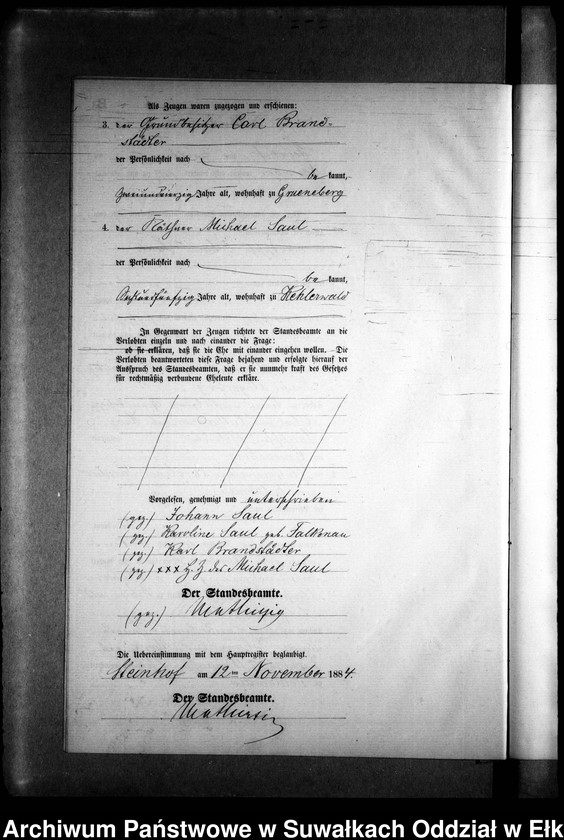 Als Zeugen waren zugezogen und erschienen:
3. der Grundbesitzer Carl Brand-
städter
der Persönlichkeit nach
be kannt,
zweiundvierzig Jahre alt, wohnhaft zu Grueneberg
4. der Käthner Michael Saul
der Persönlichkeit nach
be kannt,
Jahre alt, wohnhaft zu Kehlerwald
In Gegenwart der Zeugen richtete der Standesbeamte an die
Verlobten einzeln und nach einander die Frage:
ob sie erklären, daß sie die Ehe mit einander eingehen wollen. Die
Verlobten beantworteten diese Frage bejahend und erfolgte hierauf der
Ausspruch des Standesbeamten, daß er sie nunmehr kraft des Gesetzes
für rechtmäßig verbundene Eheleute erkläre.
Vorgelesen, genehmigt und unterschrieben
(gez.) Johann Saul
(gez.) Karoline Saul geb. Falkenau
(gez.) Karl Brandstädter
(gez.) xxx H. Z. des Michael Saul
Der Standesbeamte.
(gez.)
Die Uebereinstimmung mit dem Hauptregister beglaubigt.
Steinhof am 12ten November 1884.
Der Standesbeamte.
Archiwum Państwowe w Suwałkach Oddział w Ełk